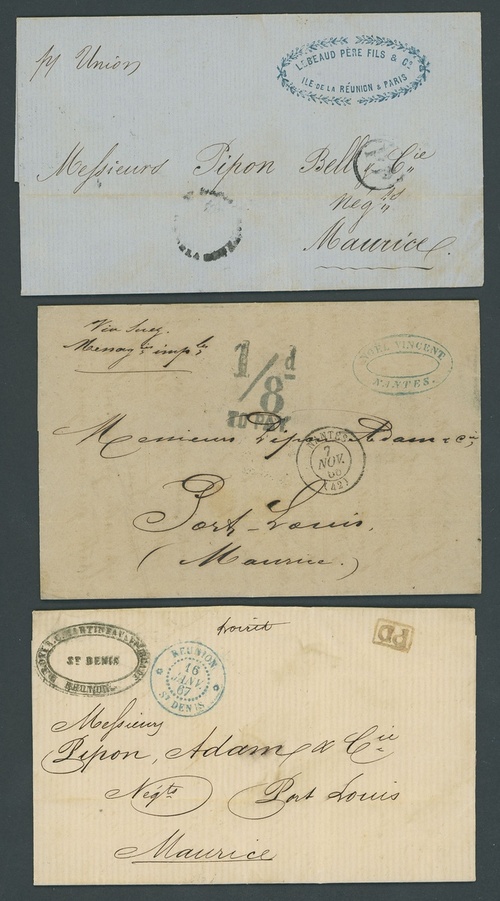 pr Union
LEBEAUD PÈRE FILS & Cᵉ
ILE DE LA RÉUNION & PARIS
Messieurs Pipon Bell & Cie
Negts
Maurice.
Via Suez.
Messag. imples
1/8d
TO PAY
NOEL VINCENT
NANTES.
Messieurs Pipon Adam & Cie,
NANTES
7
NOV.
66
(42)
Port-Louis.
(Maurice.)
ST DENIS
RÉUNION
RÉUNION
16
JANV.
67
ST DENIS
PD
Messieurs
Pipon, Adam & Cie
Negts Port Louis
Maurice